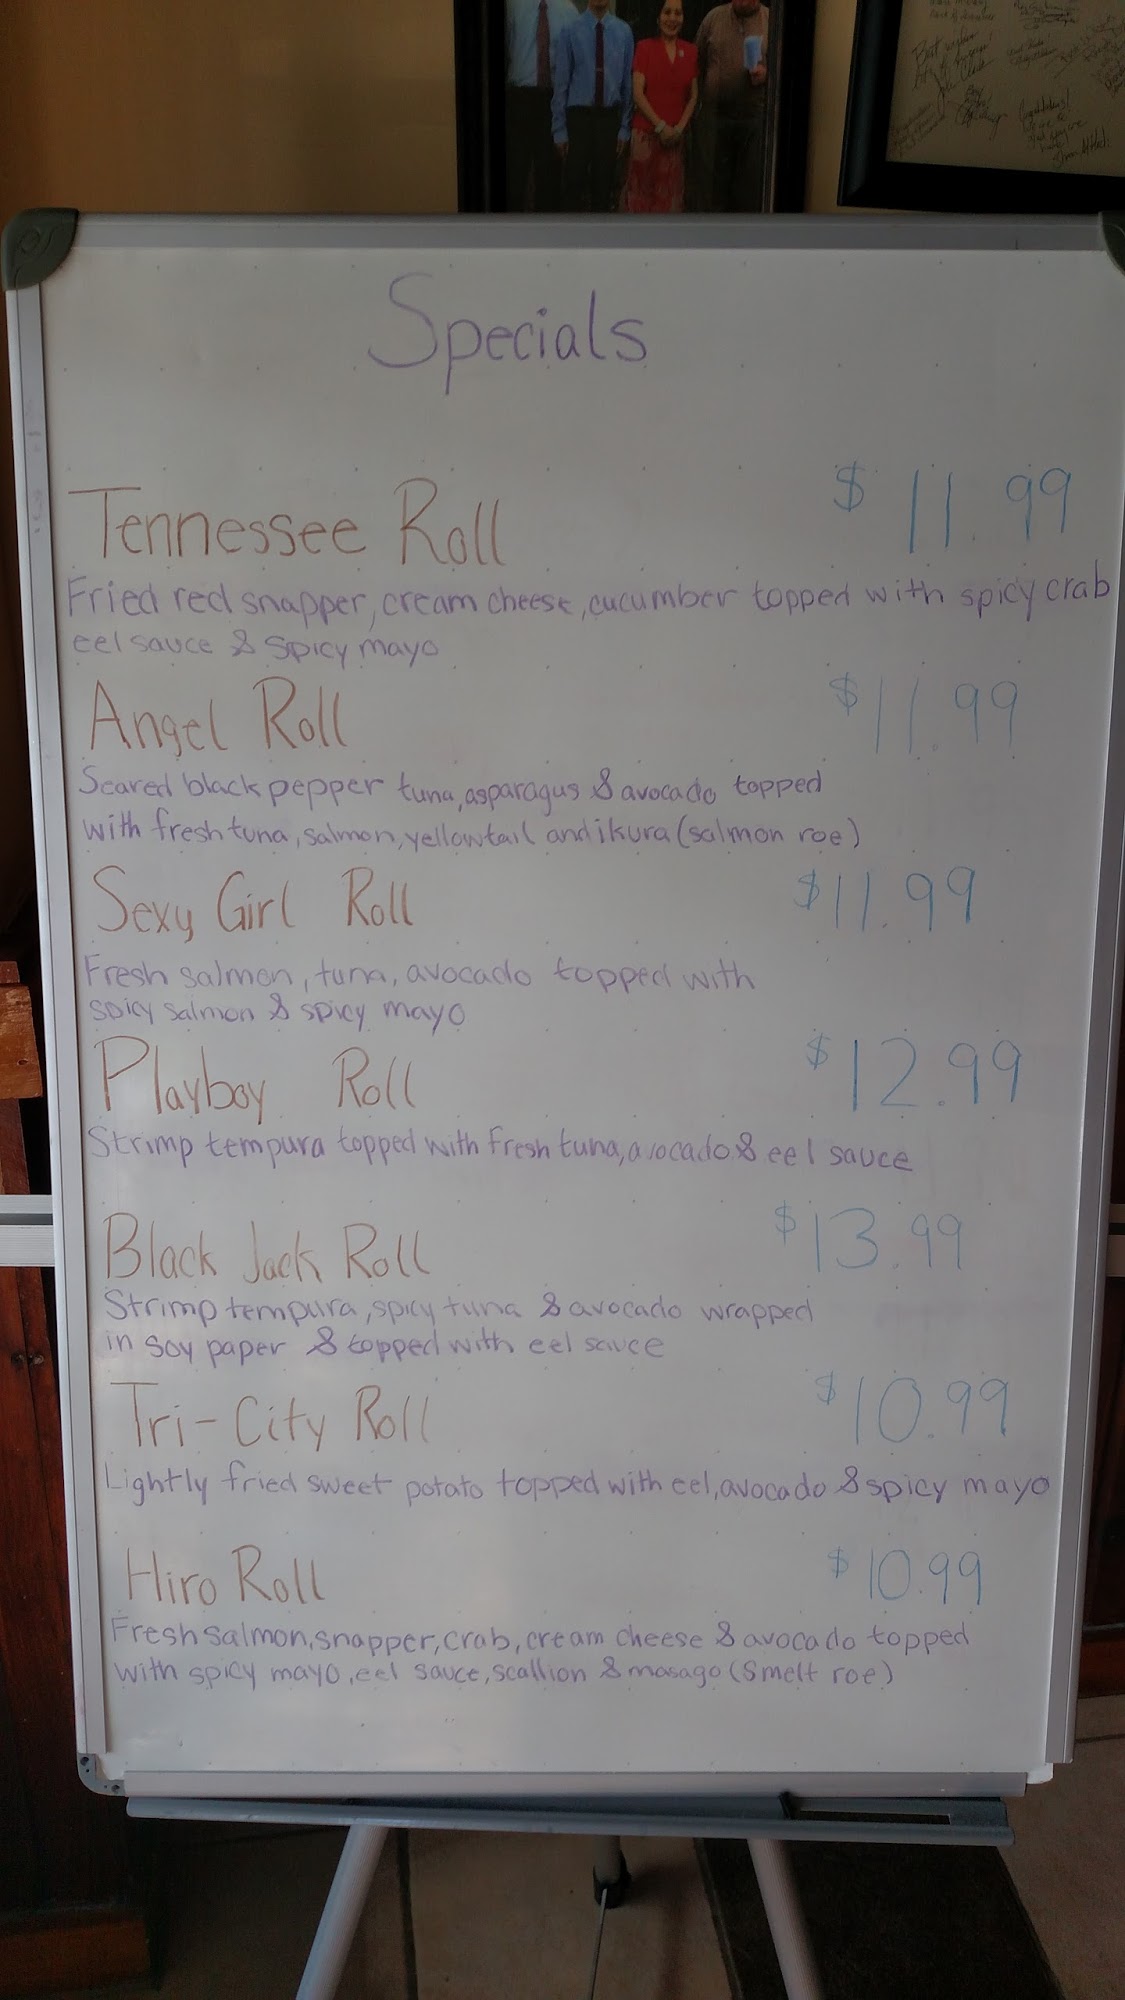 Specials
Tennessee Roll $11.99
Fried red snapper, cream cheese, cucumber topped with spicy crab
eel sauce & spicy mayo
Angel Roll $11.99
Seared black pepper tuna, asparagus & avocado topped
with fresh tuna, salmon, yellowtail and ikura (salmon roe)
Sexy Girl Roll $11.99
Fresh salmon, tuna, avocado topped with
spicy salmon & spicy mayo
Playboy Roll $12.99
Strimp tempura topped with fresh tuna, avocado & eel sauce
Black Jack Roll $13.99
Strimp tempura, spicy tuna & avocado wrapped
in soy paper & topped with eel sauce
Tri-City Roll $10.99
Lightly fried sweet potato topped with eel, avocado & spicy mayo
Hiro Roll $10.99
Fresh salmon, snapper, crab, cream cheese & avocado topped
with spicy mayo, eel sauce, scallion & masago (smelt roe)